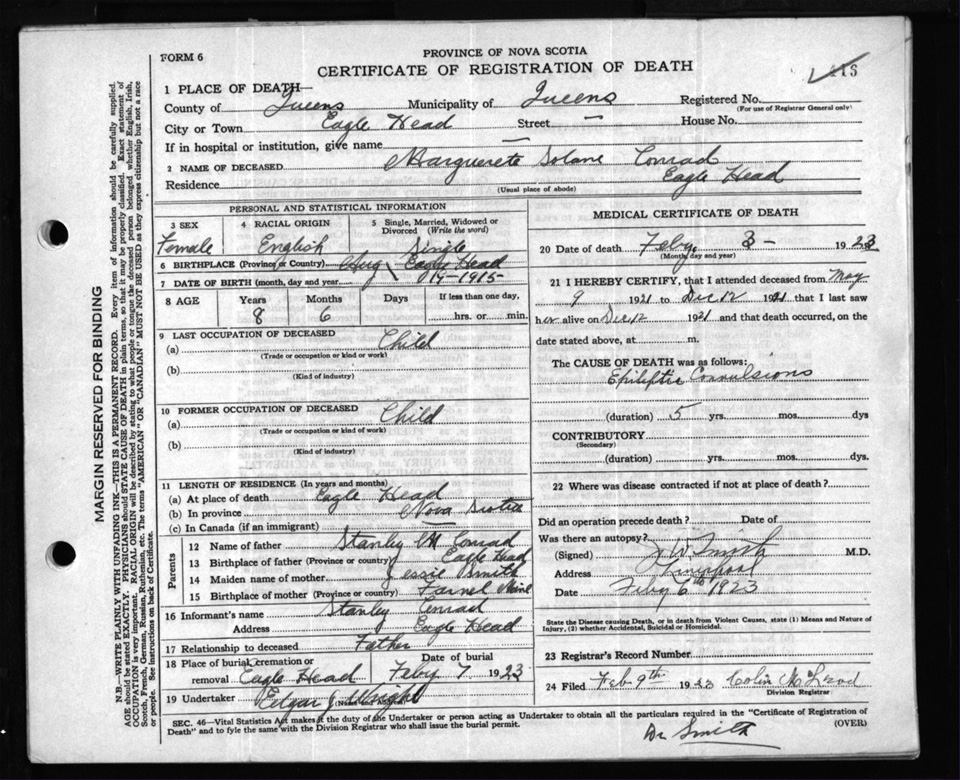 FORM 6
PROVINCE OF NOVA SCOTIA
CERTIFICATE OF REGISTRATION OF DEATH
1 PLACE OF DEATH—
County of Queens Municipality of Queens Registered No.
(For use of Registrar General only)
City or Town Eagle Head Street — House No.
If in hospital or institution, give name —
2 NAME OF DECEASED Marguerete Solane Conrad
Residence Eagle Head
(Usual place of abode)
PERSONAL AND STATISTICAL INFORMATION
3 SEX 4 RACIAL ORIGIN 5 Single, Married, Widowed or Divorced (Write the word)
Female English Single
6 BIRTHPLACE (Province or Country) Eagle Head
7 DATE OF BIRTH (month, day and year) Aug 14-1915-
8 AGE Years Months Days If less than one day,
8 6 hrs. or min.
9 LAST OCCUPATION OF DECEASED
(a) Child
(Trade or occupation or kind or work)
(b)
(Kind of industry)
10 FORMER OCCUPATION OF DECEASED
(a) Child
(Trade or occupation or kind or work)
(b)
(Kind of industry)
11 LENGTH OF RESIDENCE (In years and months)
(a) At place of death Eagle Head
(b) In province Nova Scotia
(c) In Canada (if an immigrant) —
Parents
12 Name of father Stanley M Conrad
13 Birthplace of father (Province or country) Eagle Head
14 Maiden name of mother Jessie Smith
15 Birthplace of mother (Province or country)
16 Informant's name Stanley Conrad
Address Eagle Head
17 Relationship to deceased Father
18 Place of burial, cremation or removal Eagle Head Date of burial Feby 7 1923
19 Undertaker Edgar J Wright
MEDICAL CERTIFICATE OF DEATH
20 Date of death Feby 3- 1923
(Month, day and year)
21 I HEREBY CERTIFY, that I attended deceased from May
9 1921 to Dec 12 1921 that I last saw
her alive on Dec 12 1921 and that death occurred, on the
date stated above, at m.
The CAUSE OF DEATH was as follows:
Epileptic Convulsions
(duration) 5 yrs. mos. dys
CONTRIBUTORY
(Secondary)
(duration) yrs. mos. dys.
22 Where was disease contracted if not at place of death?
Did an operation precede death? Date of
Was there an autopsy?
(Signed) J W Smith M.D.
Address Liverpool
Date Feby 6th 1923
State the Disease causing Death, or in death from Violent Causes, state (1) Means and Nature of
Injury, (2) whether Accidental, Suicidal or Homicidal.
23 Registrar's Record Number
24 Filed Feb 9th 1923 Colin McLeod
Division Registrar
SEC. 46—Vital Statistics Act makes it the duty of the Undertaker or person acting as Undertaker to obtain all the particulars required in the "Certificate of Registration of
Death" and to fyle the same with the Division Registrar who shall issue the burial permit.
(OVER)
Dr Smith
MARGIN RESERVED FOR BINDING
N.B.—WRITE PLAINLY WITH UNFADING INK—THIS IS A PERMANENT RECORD. Every item of information should be carefully supplied.
AGE should be stated EXACTLY. PHYSICIANS should STATE CAUSE OF DEATH in plain terms, so that it may be properly classified. Exact statement of
OCCUPATION is very important. RACIAL ORIGIN will be described by stating to what people or tongue the deceased person belonged whether English, Irish,
Scotch, French, German, Russian, Ruthenian, etc. The terms "AMERICAN" or "CANADIAN" MUST NOT BE USED as they express citizenship but not a race
or people. See instructions on back of Certificate.